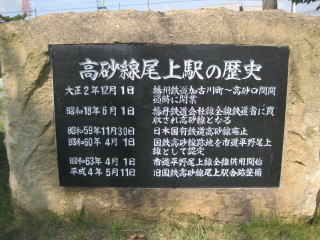 高砂線尾上駅の歴史
大正2年12月1日 播州鉄道加古川町～高砂口間開
通時に開業
昭和18年6月1日 播丹鉄道会社線全線鉄道省に買
収され高砂線となる
昭和59年11月30日 日本国有鉄道高砂線廃止
昭和60年4月1日 国鉄高砂線跡地を市道平野尾上
線として認定
昭和63年4月1日 市道平野尾上線全線供用開始
平成4年5月11日 旧国鉄高砂線尾上駅舎跡整備